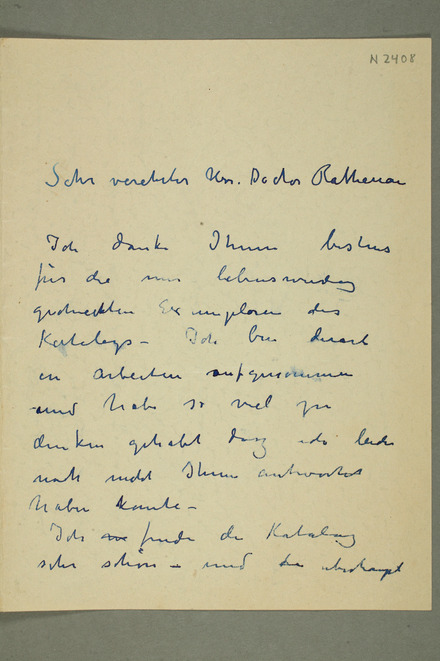 N 2408
Sehr verehrter Herr. Doctor Rathenau
Ich danke Ihnen bestens
für die mir liebenswürdig
geschickten Exemplaren des
Katalogs - Ich bin derart
in arbeiten aufgenommen
und habe so viel zu
denken gehabt dass ich leider
noch nicht Ihnen antworten
haben konnte -
Ich finde der Katalog
sehr schön - und überhaupt